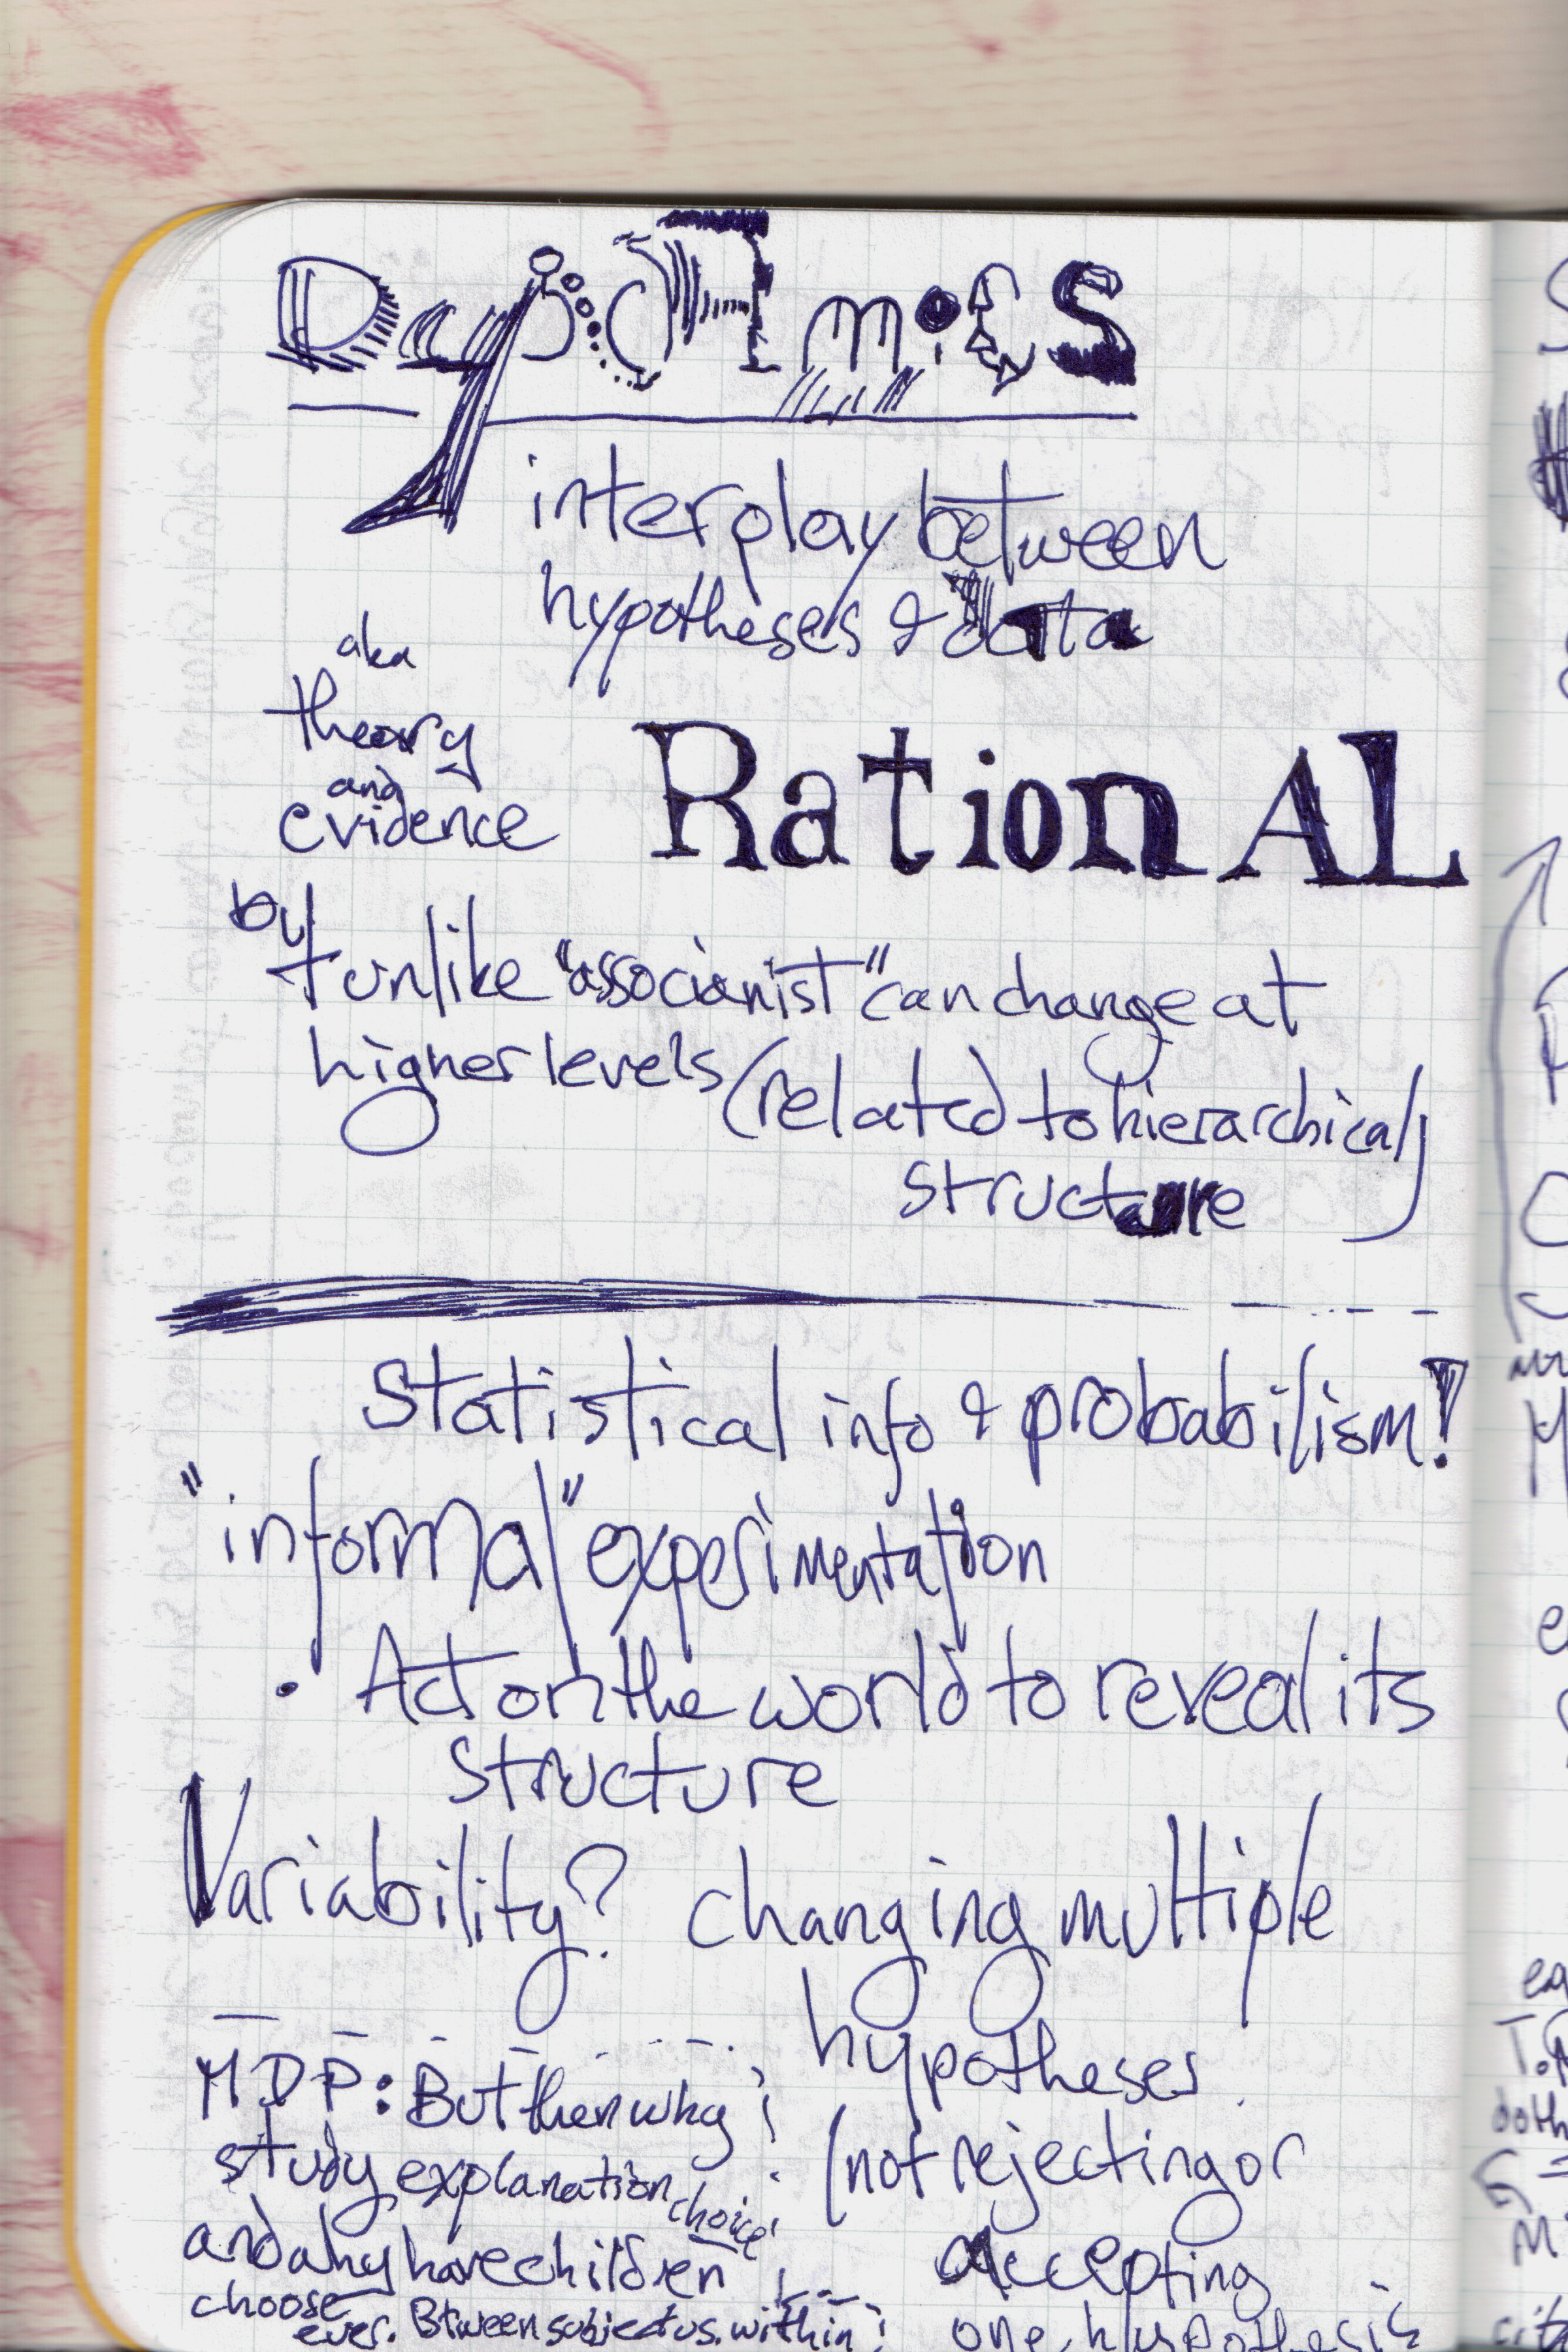 Dynamics
interplay between
hypotheses & data
aka
theory
and
evidence
RationAL
by
t unlike "associanist" can change at
higher levels (related to hierarchical)
structure
Statistical info & probabilism!
"informal" experimentation
• Act on the world to reveal its
structure
Variability? changing multiple
hypotheses
(not rejecting or
accepting
one hypothesis
MDP: But then why
study explanation choice
and why have children
choose
ever. Btween subject vs. within